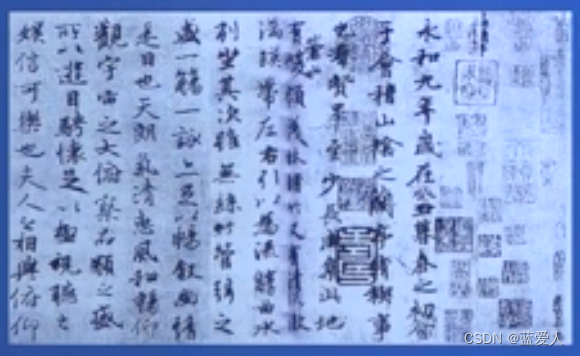 永和九年歲在癸丑暮春之初會
于會稽山陰之蘭亭脩禊事
也羣賢畢至少長咸集此地
有崇山峻領茂林脩竹又有清流激
湍暎帶左右引以為流觴曲水
列坐其次雖無絲竹管弦之
盛一觴一詠亦足以暢敘幽情
是日也天朗氣清惠風和暢仰
觀宇宙之大俯察品類之盛
所以遊目騁懷足以極視聽之
娛信可樂也夫人之相與俯仰
CSDN @蓝爱人